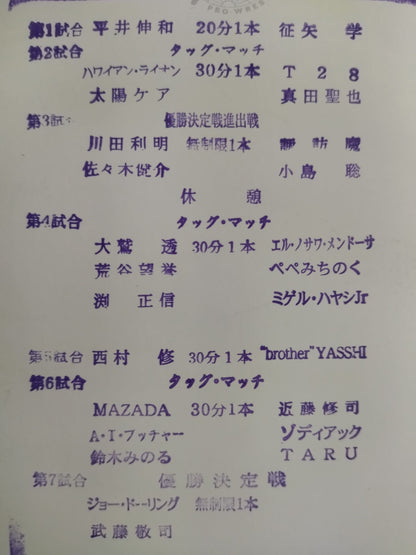 PRO WRES
第1試合 平井伸和 20分1本 征矢 学
第2試合 タッグ・マッチ
ハワイアン・ライオン 30分1本 T28
太陽ケア 真田聖也
第3試合 優勝決定戦進出戦
川田利明 無制限1本 諏訪魔
佐々木健介 小島 聡
休憩
第4試合 タッグ・マッチ
大鷲 透 30分1本 エル・ノサワ・メンドーサ
荒谷望誉 ペペみちのく
渕 正信 ミゲル・ハヤシJr
第5試合 西村 修 30分1本 "brother"YASSHI
第6試合 タッグ・マッチ
MAZADA 30分1本 近藤修司
A・T・ブッチャー ゾディアック
鈴木みのる TARU
第7試合 優勝決定戦
ジョー・ドーリング 無制限1本
武藤敬司